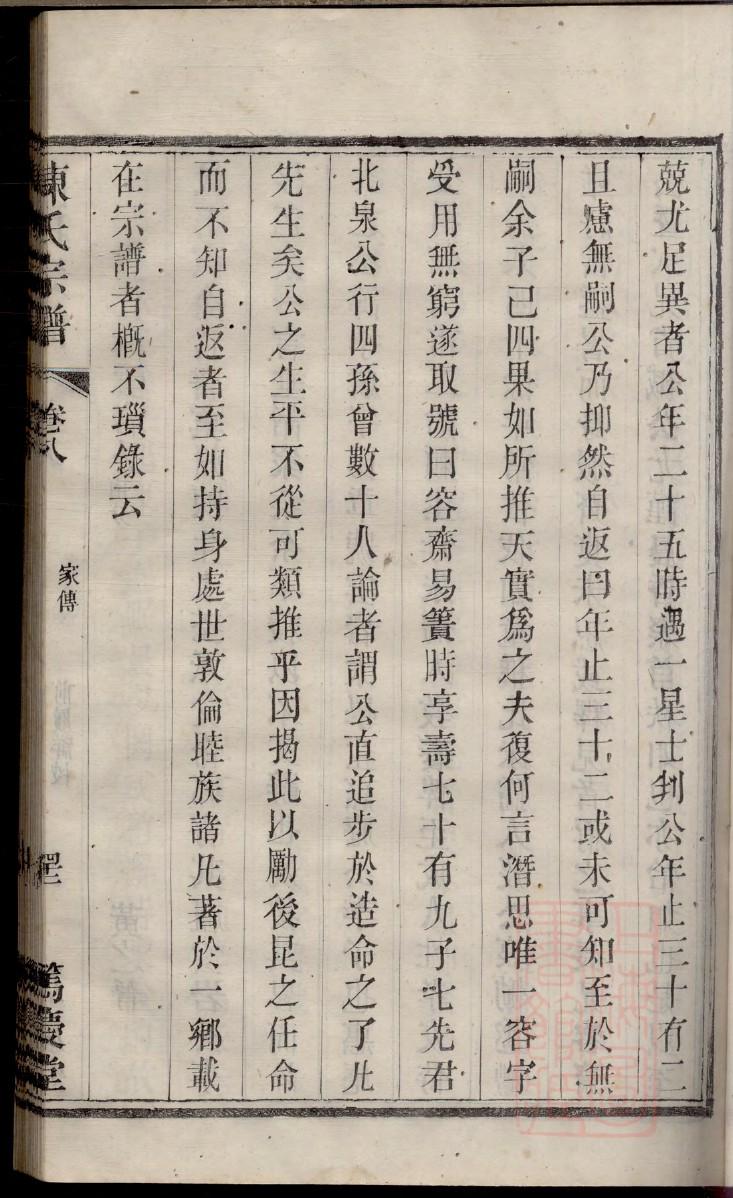 兢尤足異者公年二十五時遇一星士判公年止三十有二
且慮無嗣公乃抑然自返曰年止三十二或未可知至於無
嗣余子已四果如所推天實爲之夫復何言潛思唯一容字
受用無窮遂取號曰容齋易簀時享壽七十有九子七先君
北泉公行四孫曾數十人論者謂公直追步於造命之了凡
先生矣公之生平不從可類推乎因揭此以勵後昆之任命
而不知自返者至如持身處世敦倫睦族諸凡著於一鄉載
在宗譜者槪不瑣錄云
陳氏宗譜
卷八
家傳
篤慶堂